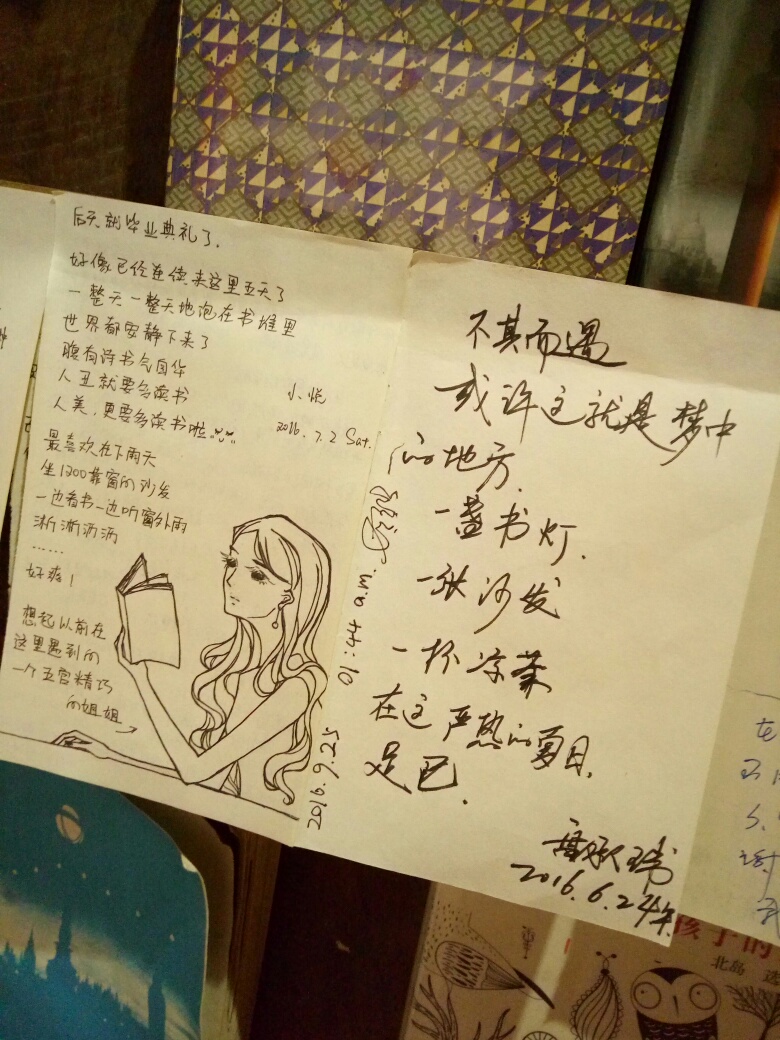 后天就毕业典礼了.
好像已经连续来这里五天了
一整天一整天地泡在书堆里
世界都安静下来了
腹有诗书气自华
人丑就要多读书
人美,更要多读书啦
小悦
2016.7.2 Sat.
最喜欢在下雨天
坐1200靠窗的沙发
一边看书一边听窗外雨
淅淅沥沥
……
好爽!
想起以前在
这里遇到的
一个五官精巧
的姐姐
2016.9.25 01:44 a.m.
不其而遇
或许这就是梦中
的地方.
一盏书灯.
一张沙发
一杯凉茶
在这严热的夏日.
足已.
2016.6.24午
孩子的
北岛 选